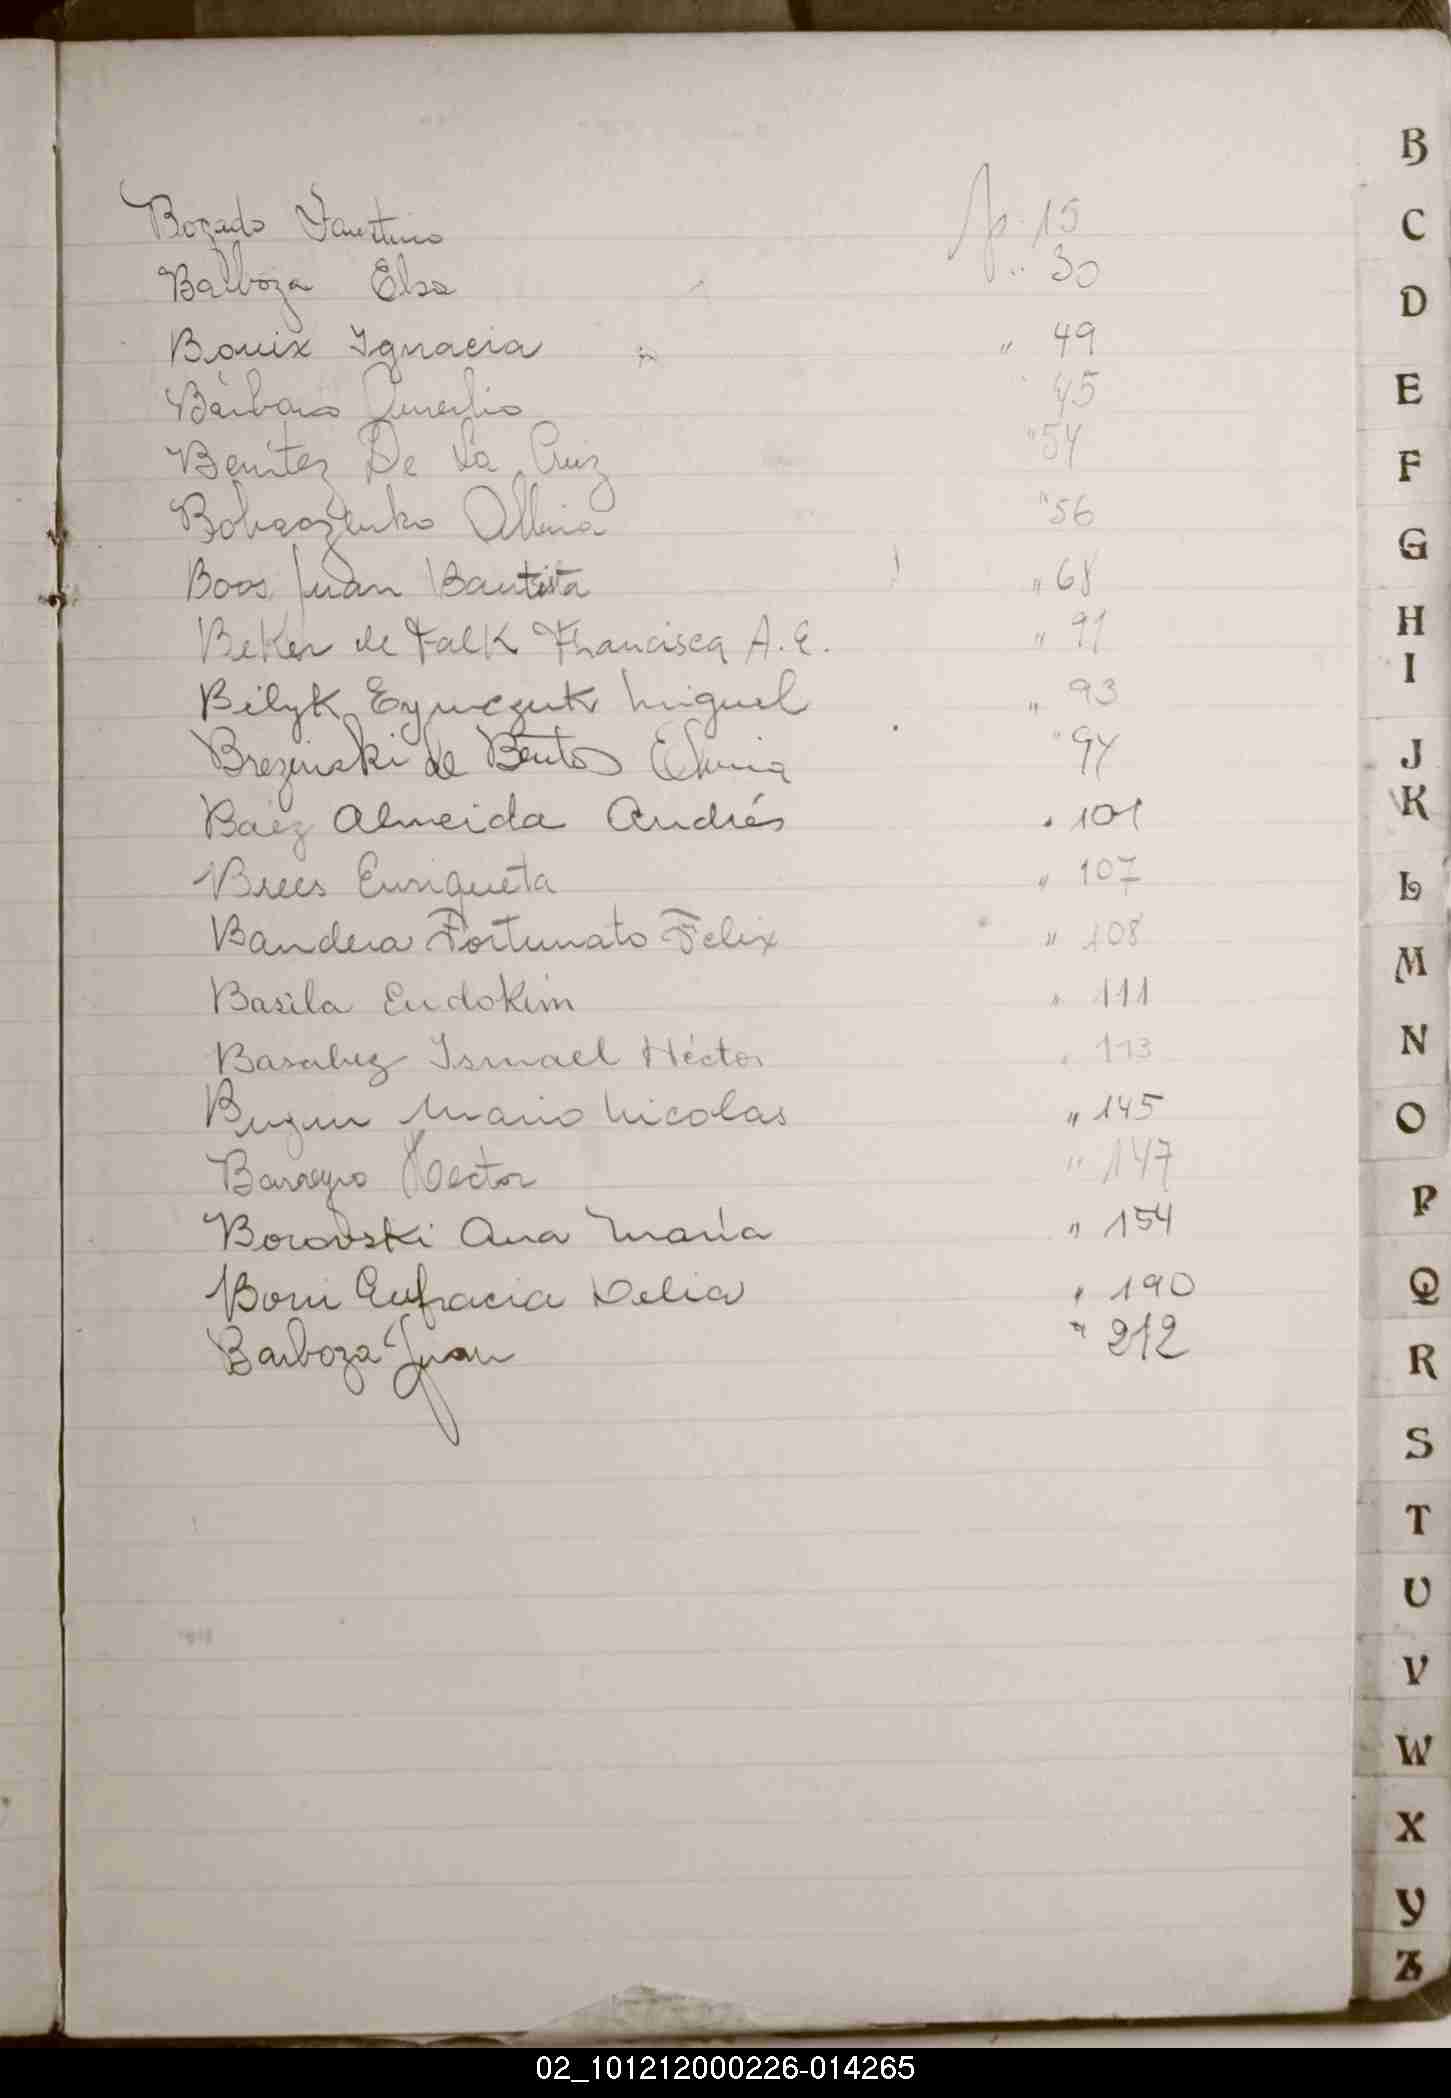 Bozado Faustino fp. 15
Balboza Elsa " 30
Bouix Ignacia " 49
Bárbaro Aurelio 45
Benítez De La Cruz " 54
Albina " 56
Boos Juan Bautista " 68
Beker de Falk Francisca A. E. " 91
Bilyk Miguel " 93
Brezinski de Bento " 94
Baéz Almeida Andrés " 101
Brees Enriqueta " 107
Bandera Fortunato Felix " 108
Basila Eudokim " 111
Ismael Héctor " 113
Mario Nicolas " 145
Hector " 147
Borovski Ana María " 154
Boni Eufracia Delia " 190
Barboza Juan " 212
B
C
D
E
F
G
H
I
J
K
L
M
N
O
P
Q
R
S
T
U
V
W
X
Y
Z
02_101212000226-014265